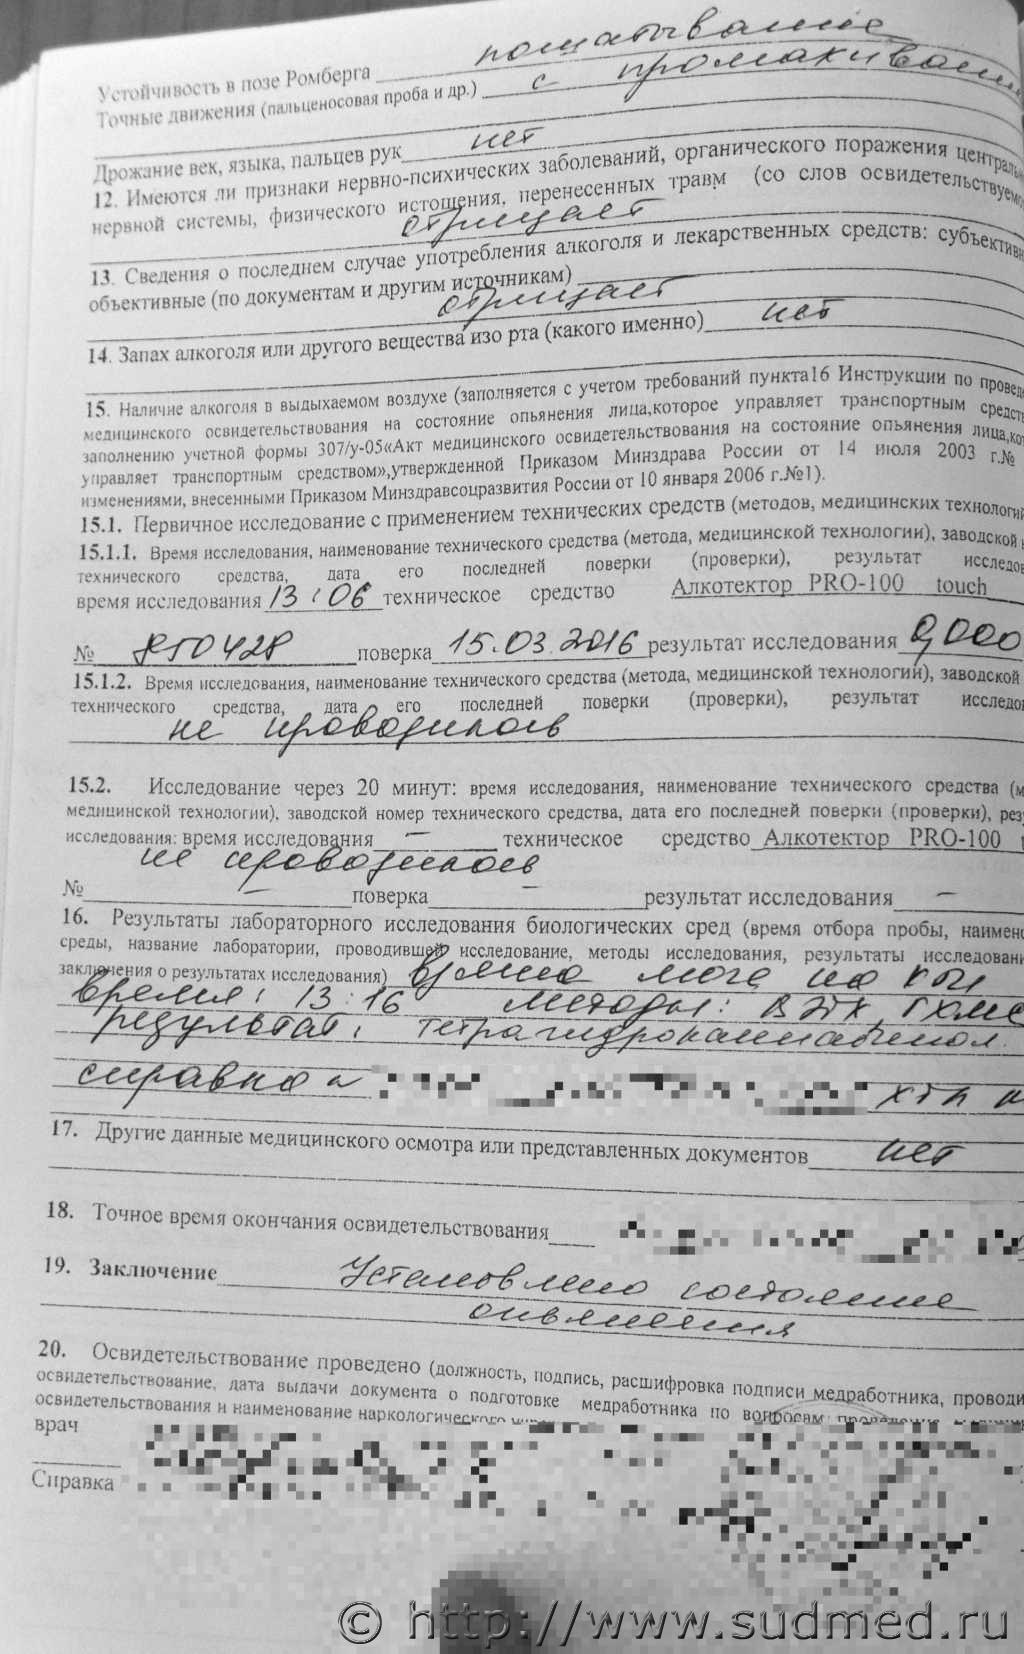 Устойчивость в позе Ромберга пошатывание
Точные движения (пальценосовая проба и др.) с промахиванием
Дрожание век, языка, пальцев рук нет
12. Имеются ли признаки нервно-психических заболеваний, органического поражения централь
нервной системы, физического истощения, перенесенных травм (со слов освидетельствуемо
отрицает
13. Сведения о последнем случае употребления алкоголя и лекарственных средств: субъективн
объективные (по документам и другим источникам)
отрицает
14. Запах алкоголя или другого вещества изо рта (какого именно) нет
15. Наличие алкоголя в выдыхаемом воздухе (заполняется с учетом требований пункта16 Инструкции по провед
медицинского освидетельствования на состояние опьянения лица,которое управляет транспортным средств
заполнению учетной формы 307/у-05«Акт медицинского освидетельствования на состояние опьянения лица,кот
управляет транспортным средством»,утвержденной Приказом Минздрава России от 14 июля 2003 г.№
изменениями, внесенными Приказом Минздравсоцразвития России от 10 января 2006 г.№1).
15.1. Первичное исследование с применением технических средств (методов, медицинских технологий
15.1.1. Время исследования, наименование технического средства (метода, медицинской технологии), заводской
технического средства, дата его последней поверки (проверки), результат исследов
время исследования 13:06 техническое средство Алкотектор PRO-100 touch
№ 850428 поверка 15.03.2016 результат исследования 0,000
15.1.2. Время исследования, наименование технического средства (метода, медицинской технологии), заводской
технического средства, дата его последней поверки (проверки), результат исследов
не проводилось
15.2. Исследование через 20 минут: время исследования, наименование технического средства (м
медицинской технологии), заводской номер технического средства, дата его последней поверки (проверки), рез
исследования: время исследования – техническое средство Алкотектор PRO-100
не проводилось
№ – поверка – результат исследования –
16. Результаты лабораторного исследования биологических сред (время отбора пробы, наимено
среды, название лаборатории, проводившей исследование, методы исследования, результаты исследован
заключения о результатах исследования) моча на
время: 13:16 методы:
результат: тетрагидроканнабинол.
справка ХТЛ
17. Другие данные медицинского осмотра или представленных документов нет
18. Точное время окончания освидетельствования
19. Заключение Установлено состояние
опьянения
20. Освидетельствование проведено (должность, подпись, расшифровка подписи медработника, проводи
освидетельствование, дата выдачи документа о подготовке медработника по вопросам
освидетельствования и наименование наркологического
врач
Справка
© http://www.sudmed.ru